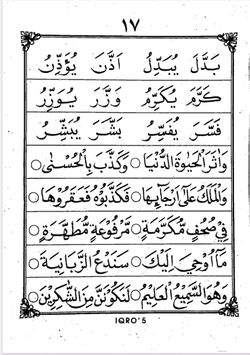 ١٧
بَدَّلَ يُبَدِّلُ اَذَّنَ يُؤَذِّنُ
كَرَّمَ يُكَرِّمُ وَزَّرَ يُوَزِّرُ
فَسَّرَ يُفَسِّرُ بَشَّرَ يُبَشِّرُ
وَاٰثَرَ الْحَيٰوةَ الدُّنْيَا ○ وَكَذَّبَ بِالْحُسْنٰى ○
وَالْمَلَكُ عَلٰى اَرْجَآئِهَا ○ فَكَذَّبُوْهُ فَعَقَرُوْهَا ○
فِيْ صُحُفٍ مُّكَرَّمَةٍ ○ مَرْفُوْعَةٍ مُّطَهَّرَةٍ ○
مَآ اُوْحِيَ اِلَيْكَ ○ سَنَدْعُ الزَّبَانِيَةَ ○
وَهُوَ السَّمِيْعُ الْعَلِيْمُ ○ لَنَكُوْنَنَّ مِنَ الشّٰكِرِيْنَ ○
IQRO' 5